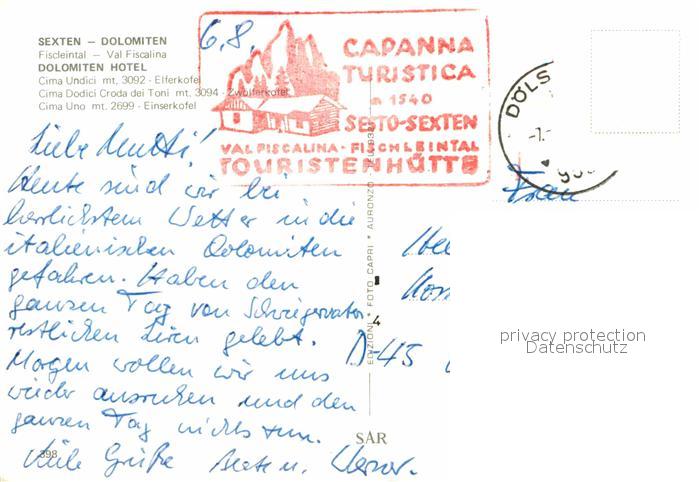 SEXTEN – DOLOMITEN
Fiscleintal – Val Fiscalina
DOLOMITEN HOTEL
Cima Undici mt. 3092 - Elferkofel
Cima Dodici Croda dei Toni mt. 3094 - Zwölferkofel
Cima Uno mt. 2699 - Einserkofel
6.8.
CAPANNA
TURISTICA
m 1540
SESTO-SEXTEN
VAL FISCALINA - FISCHLEINTAL
TOURISTENHÜTTE
DÖLS
Liebe Mutti!
Heute sind wir bei
herrlichstem Wetter in die
italienischen Dolomiten
gefahren. Haben den
ganzen Tag von Schwiegervater
restlichen Liren gelebt.
Morgen wollen wir uns
wieder ausruhen und den
ganzen Tag nichts tun.
Viele Grüße Beate u. Werner.
398
EDIZIONI * FOTO CAPRI * AURONZO
4
SAR
Frau
D-45
privacy protection
Datenschutz